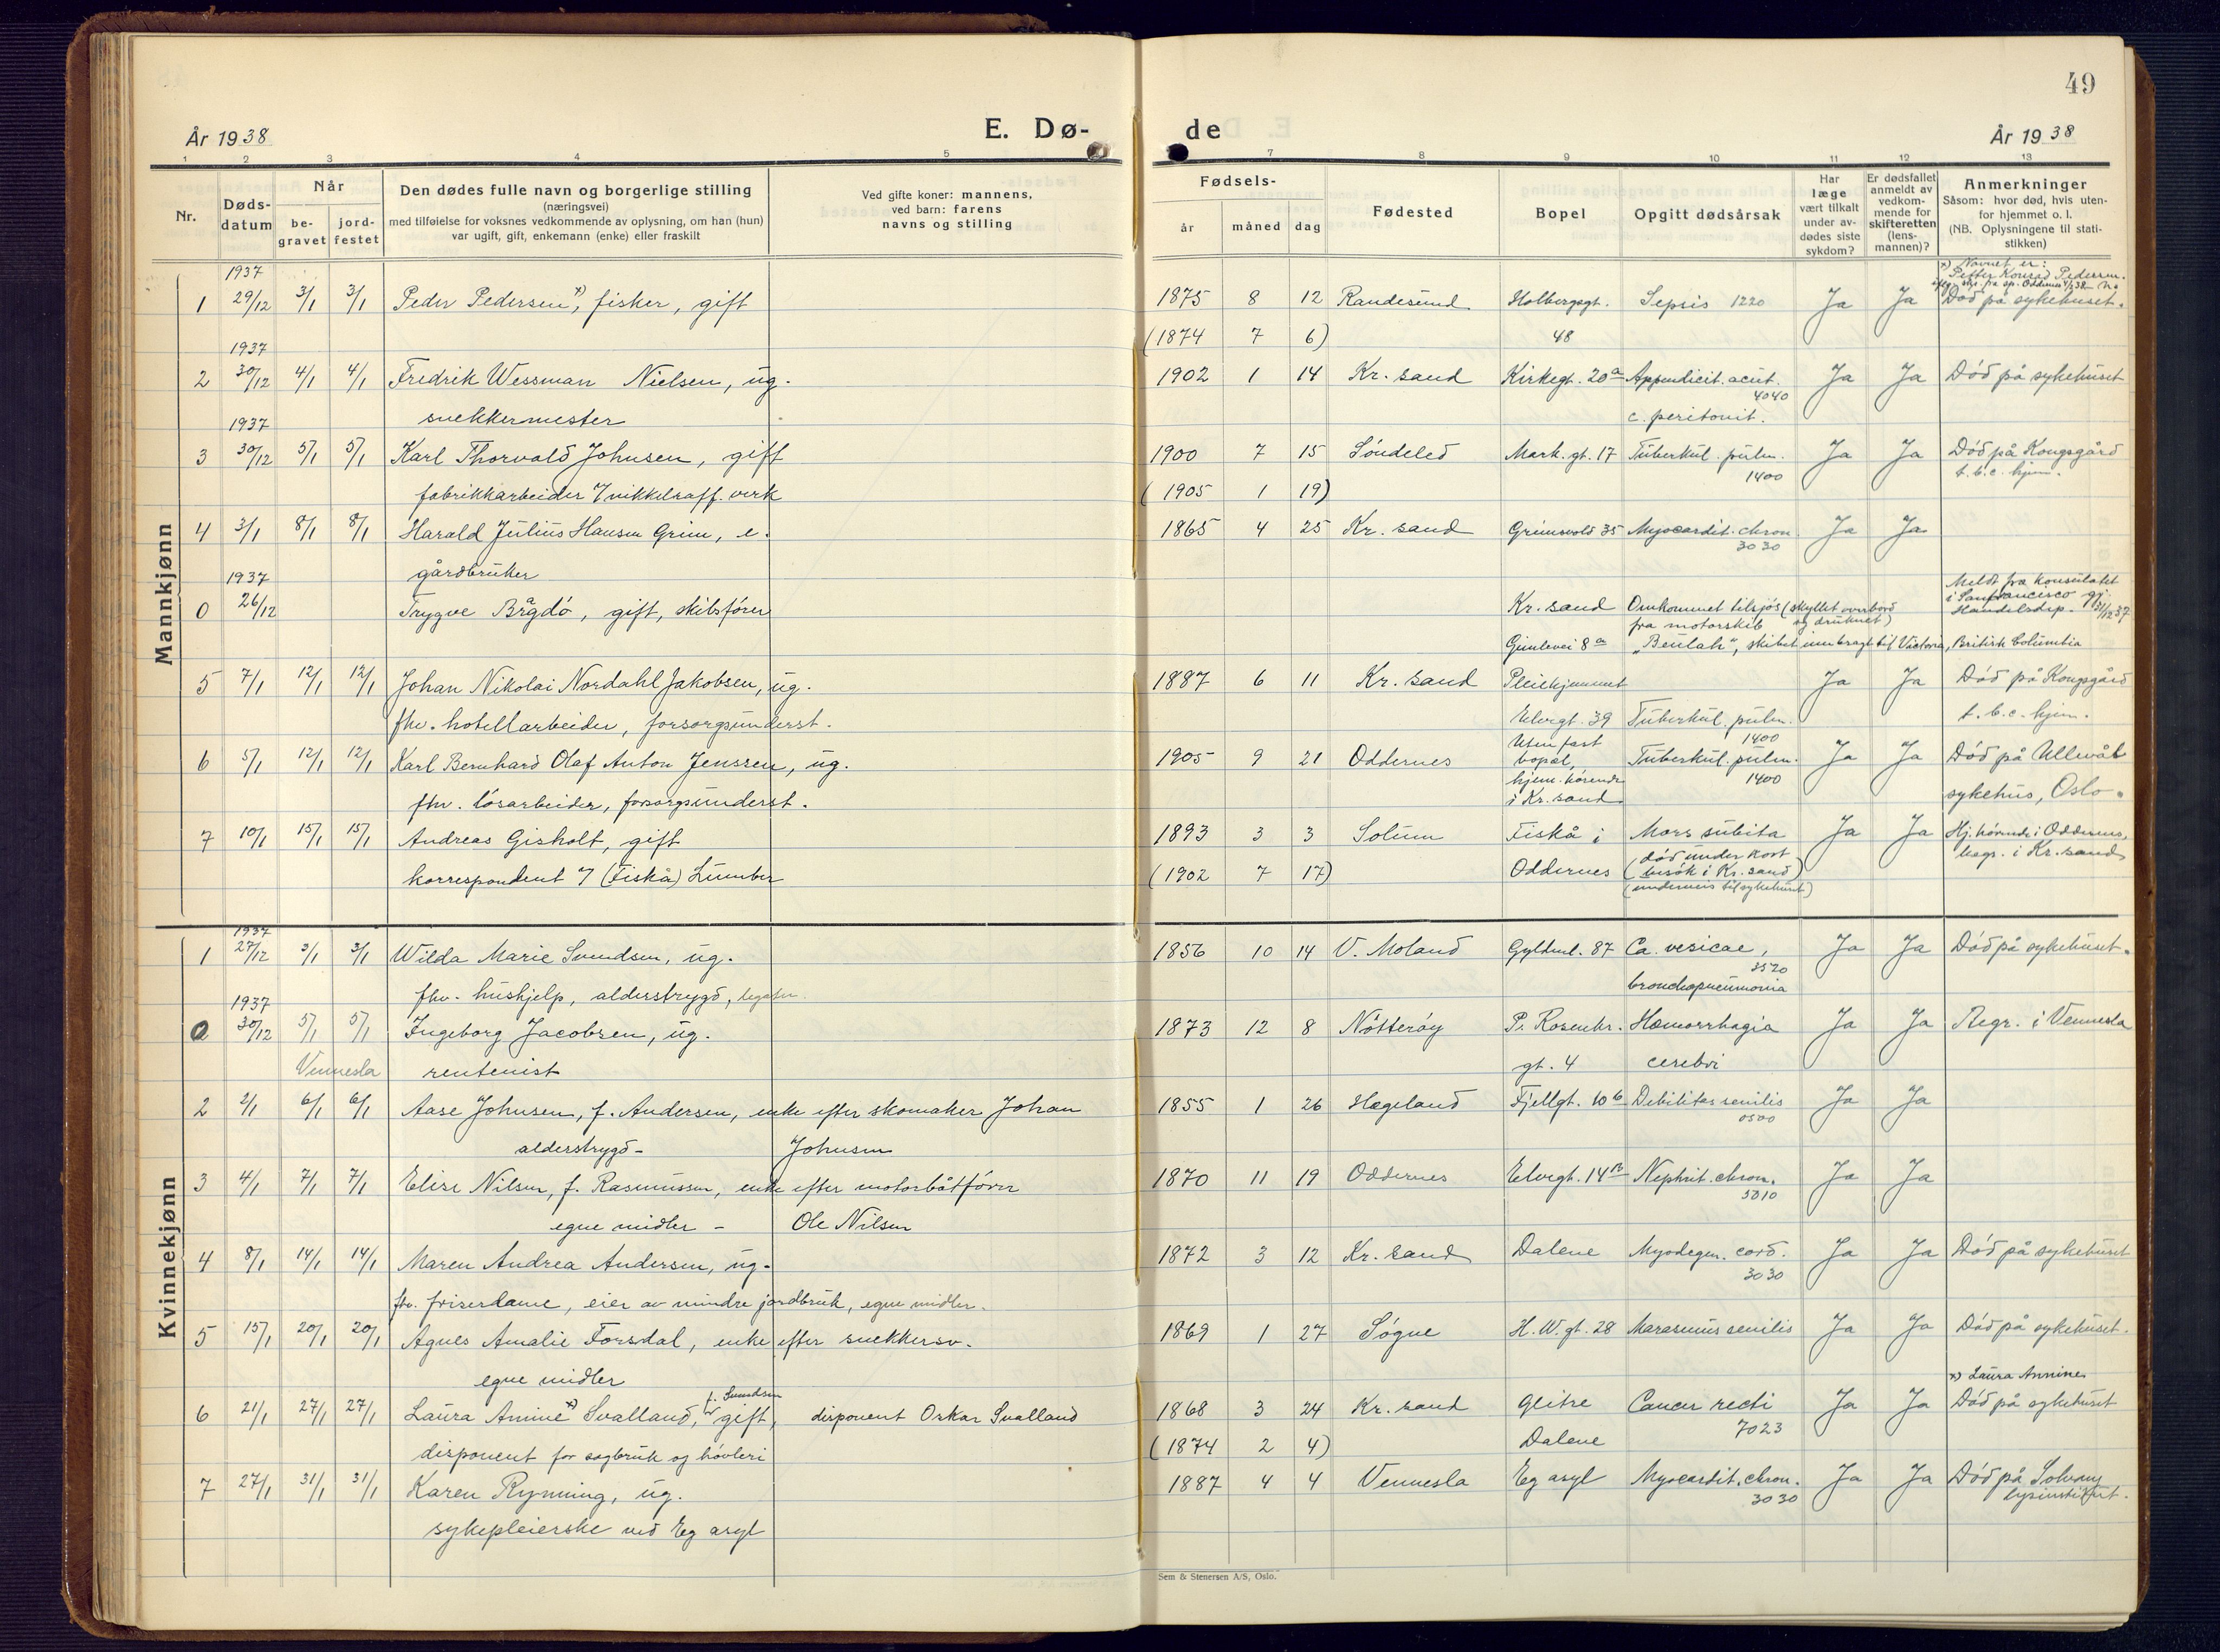 49
År 1938
E. Dø-
de
År 1938
1 2 3 4 5 7 8 9 10 11 12 13
Nr.
Døds-
datum
Når
be-
gravet
jord-
festet
Den dødes fulle navn og borgerlige stilling
(næringsvei)
med tilføielse for voksnes vedkommende av oplysning, om han (hun)
var ugift, gift, enkemann (enke) eller fraskilt
Ved gifte koner: mannens,
ved barn: farens
navns og stilling
Fødsels-
år måned dag
Fødested
Bopel
Opgitt dødsårsak
Har
læge
vært tilkalt
under av-
dødes siste
sykdom?
Er dødsfallet
anmeldt av
vedkom-
mende for
skifteretten
(lens-
mannen)?
Anmerkninger
Såsom: hvor død, hvis uten-
for hjemmet o. l.
(NB. Oplysningene til stati-
stikken)
Mannkjønn
1937 x) Navnet er:
Petter Konrad Pedersen.
1 29/12 3/1 3/1 Peder Pedersen x), fisker, gift 1875 8 12 Randesund Holbergsgt. Sepsis 1220 Ja Ja Død på sykehuset.
1937 (1874 7 6) 48
2 30/12 4/1 4/1 Fredrik Wessman Nielsen, ug. 1902 1 14 Kr. sand Kirkegt. 20a Appendicit. acut. Ja Ja Død på sykehuset
4040
1937 snekkermester c. peritonit.
3 30/12 5/1 5/1 Karl Thorvald Johnsen, gift 1900 7 15 Søndeled Mark. gt. 17 Tuberkul. pulm. Ja Ja Død på Kongsgård
1400 t.b.c. hjem.
fabrikkarbeider v/ nikkelraff. verk (1905 1 19)
4 3/1 8/1 8/1 Harald Julius Hansen Grim, e. 1865 4 25 Kr. sand Grimsvold 35 Myocardit. chron. Ja Ja
3030
1937 gårdbruker
Meldt fra konsulatet
i San Francisco gj.
0 26/12 Trygve Brågdø, gift, skibsfører Kr. sand Omkommet tilsjøs (skyllet overbord Handelsdep. 31/12 37
fra motorskib og druknet)
Gimlevei 8a "Beulah", skibet innbragt til Victoria, British Columbia
5 7/1 12/1 12/1 Johan Nikolai Nordahl Jakobsen, ug. 1887 6 11 Kr. sand Pleiehjemmet Ja Ja Død på Kongsgård
fhv. hotellarbeider, forsorgsunderst. Elvegt. 39 Tuberkul. pulm. t.b.c. hjem.
1400
6 5/1 12/1 12/1 Karl Bernhard Olaf Anton Jenssen, ug. 1905 9 21 Oddernes Uten fast bopæl, Tuberkul. pulm. Ja Ja Død på Ullevål
hjem. hørende 1400
fhv. løsarbeider, forsorgsunderst. i Kr. sand sykehus, Oslo.
7 10/1 15/1 15/1 Andreas Gisholt, gift 1893 3 3 Solum Fiskå i Mors subita Ja Ja Hj. hørende i Oddernes,
(død under kort begr. i Kr. sand
korrespondent v/ (Fiskå) Lumber (1902 7 17) Oddernes besøk i Kr. sand)
(underveis til sykehuset)
Kvinnekjønn
1937
1 27/12 3/1 3/1 Wilda Marie Svendsen, ug. 1856 10 14 V. Moland Gyldenl. 87 Ca. vesicae, Ja Ja Død på sykehuset.
fhv. hushjelp, alderstrygd, bronchopneumonia
1937
0 30/12 5/1 5/1 Ingeborg Jacobsen, ug. 1873 12 8 Nøtterøy P. Rosenkr. Hæmorrhagia Ja Ja Begr. i Vennesla
Vennesla rentenist gt. 4 cerebri
2 2/1 6/1 6/1 Aase Johnsen, f. Andersen, enke efter skomaker Johan 1855 1 26 Hægeland Fjellgt. 10b Debilitas senilis Ja Ja
0500
alderstrygd - Johnsen
3 4/1 7/1 7/1 Elise Nilsen, f. Rasmussen, enke efter motorbåtfører 1870 11 19 Oddernes Elvegt. 14B Nephrit. chron. Ja Ja
5010
egne midler - Ole Nilsen
4 8/1 14/1 14/1 Maren Andrea Andersen, ug. 1872 3 12 Kr. sand Dalene Myodegen. cord. Ja Ja Død på sykehuset
3030
fhv. friserdame, eier av mindre jordbruk, egne midler.
5 15/1 20/1 20/1 Agnes Amalie Forsdal, enke efter snekkersv. 1869 1 27 Søgne H.W. gt. 28 Marasmus senilis Ja Ja Død på sykehuset.
egne midler x) Laura Annine
f. Svendsen
6 21/1 27/1 27/1 Laura Amine x) Svalland, gift, disponent Oskar Svalland 1868 3 24 Kr. sand Gleitre Cancer recti Ja Ja Død på sykehuset
7023
disponent for sagbruk og høvleri (1874 2 4) Dalene
7 27/1 31/1 31/1 Karen Rynning, ug. 1887 4 4 Vennesla Eg asyl Myocardit. chron. Ja Ja Død på Solvang
3030 lysinstitut.
sykepleierske ved Eg asyl
Sem & Stenersen A/S, Oslo.